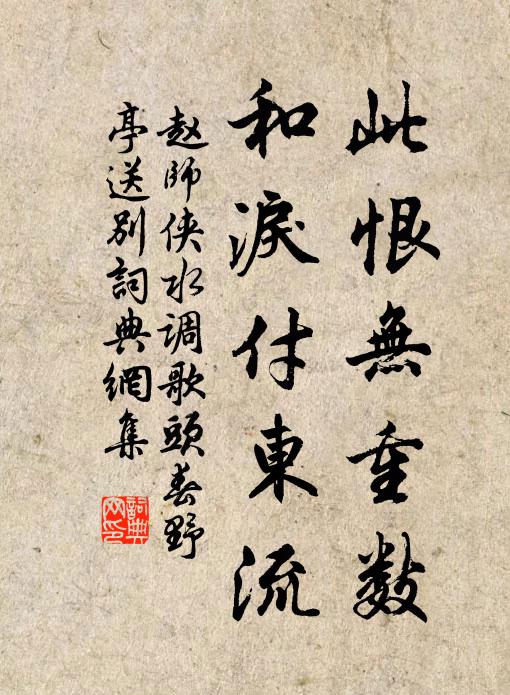 此恨無重數
和淚付東流
赵師侠水调歌頭春野
亭送别詞典網集
詞典网印